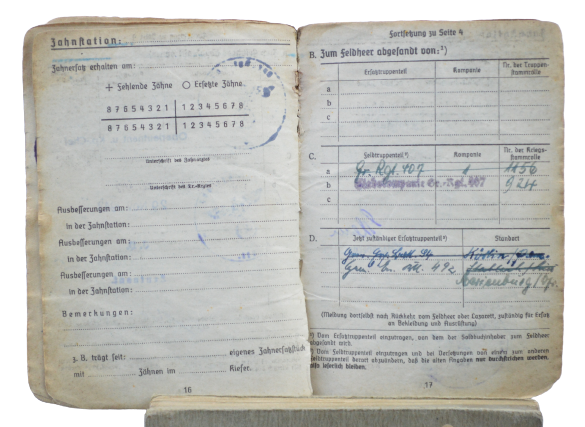 Zahnstation:
Zahnersatz erhalten am:
+ Fehlende Zähne ○ Ersetzte Zähne.
8 7 6 5 4 3 2 1 | 1 2 3 4 5 6 7 8
8 7 6 5 4 3 2 1 | 1 2 3 4 5 6 7 8
Unterschrift des Zahnarztes
Unterschrift des Tr.-Arztes
Ausbesserungen am:
in der Zahnstation:
Ausbesserungen am:
in der Zahnstation:
Ausbesserungen am:
in der Zahnstation:
Bemerkungen:
z. B. trägt seit: eigenes Zahnersatzstück
mit Zähnen im Kiefer.
16
Fortsetzung zu Seite 4
B. Zum Feldheer abgesandt von:¹)
Ersatztruppenteil Kompanie Nr. der Truppenstammrolle
a
b
c
C.
Feldtruppenteil ²) Kompanie Nr. der Kriegsstammrolle
a Gr. Rgt. 407 1156
b Stabskompanie Gr.-Rgt. 407 924
c
D. Jetzt zuständiger Ersatztruppenteil ²) Standort
Marienburg
(Meldung dortselbst nach Rückkehr vom Feldheer oder Lazarett, zuständig für Ersatz
an Bekleidung und Ausrüstung)
¹) Vom Ersatztruppenteil einzutragen, von dem der Soldbuchinhaber zum Feldheer
abgesandt wird.
²) Vom Feldtruppenteil einzutragen und bei Versetzungen von einem zum anderen
Feldtruppenteil derart abzuändern, daß die alten Angaben nur durchstrichen werden,
also leserlich bleiben.
17